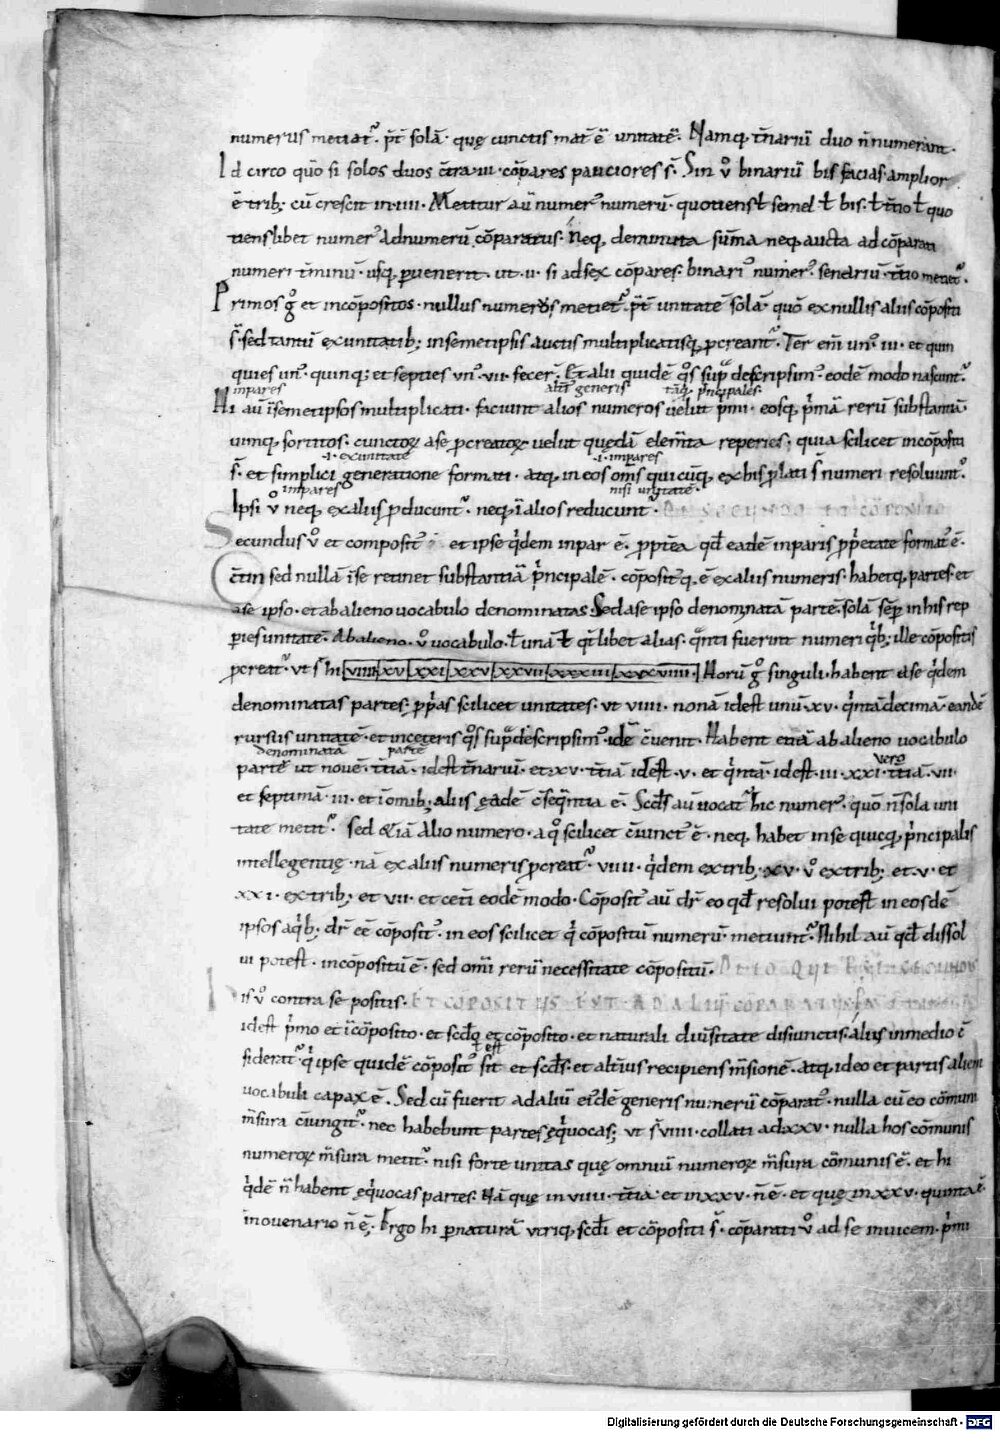 numerus metiat᷑. p̄t̄ solā. quę cunctis mat̄ ē unitatē. Namq; t̄nariū duo n̄ numerant.
Id circo quō si solos duos c̄tra .iii. cōpares pauciores s̄. Sin v̊ binariū bis facias amplior
ē trib; cū crescit in .iiii. Metitur aū numer᷒ numerū. quotiensł semel ł bis. ł t̄tio ł quo
tienslibet numer᷒ ad numerū cōparatus. neq; deminuta sūma neq; aucta ad cōparati
numeri t̄minū. usq; peruenerit. ut .ii. si ad sex cōpares. binari᷒ numer᷒ senariū. t̄tio metiet᷑.
Primos g̊ et incōpositos. nullus numerus metiet᷑. p̄t̄ unitatē solā. quō ex nullis aliis cōpositi
s̄. sed tantū ex unitatib; in semetipsis auctis multiplicatisq; pcreant᷑. Ter em̄ un᷒ .iii. et quin
quies un᷒. quinq; et septies un᷒ .vii. fecer̄. Et alii quidē q̊s sup᷒ descripsim᷒. eodē modo nascunt᷑.
impares alti᷒ generis tāq; p̄ncipales.
Hi aū ī semetipsos multiplicati. faciunt alios numeros uelut p̄mi. eosq; p̄mā rerū substantiā
uimq; sortitos. cunctoꝝ a se pcreatoꝝ uelut quędā elem̄ta reperies. quia scilicet incōpositi
.i. ex unitate .i. impares
s̄. et simplici generatione formati. atq; in eos om̄s quicūq; ex his plati s̄ numeri resoluunt᷑.
impares nisi unitatē.
Ipsi v̊ neq; ex aliis pducunt᷑. neq; ī alios reducunt᷑. DE SECUNDO ET COPOSITO
Secundus v̊ et composit᷒ et ipse q̄dem inpar ē. ppt̄ea qđ eadē inparis ppetate format᷒ ē.
sed nullā ī se retinet substantiā p̄ncipalē. cōposit᷒q; ē ex aliis numeris. habetq; partes. et
a se ipso. et ab alieno uocabulo denominatas. Sed a se ipso denominatā partē. solā sēp in his rep
peries unitatē. Ab alieno v̊ uocabulo. ł unā ł q̄tlibet alias. q̄nti fuerint numeri q̄b; ille cōpositis
pcreat᷑. ut s̄ hi viiii xv xxi xxv xxvii xxxiii xxxviiii. Horū g̊ singuli. habent a se q̄dem
denominatas partes. pp̄as scilicet unitates. ut viiii. nonā idest unū. xv. q̄ntādecimā. eandē
rursus unitatē. et in ceteris q̊s sup᷒ descripsim᷒. idē c̄uenit. Habent etiā ab alieno uocabulo
denominatā partē vero
partē ut nouē. t̄tiā. idest t̄nariū. et xv. t̄tiā idest .v. et q̄ntā. idest .iii. xxi. t̄tiā .vii.
et septimā .iii. et ī omib; aliis eadē c̄seq̄ntia ē. Scđs aū uocat᷑ hic numer᷒. quō n̄ sola uni
tate metit᷑. sed etiā alio numero. a q̊ scilicet c̄iunct᷒ ē. neq; habet in se quicq; p̄ncipalis
intellegentię. nā ex aliis numeris pcreat᷑. viiii. q̄dem ex trib; xv. v̊ ex trib; et .v. et
xxi. ex trib; et vii. et cet̄i eodē modo. Cōposit᷒ aū dr̄ eo qđ resolui potest in eosdē
ipsos a q̄b; dr̄ ēē cōposit᷒. in eos scilicet q̄ cōpositū numerū metiunt᷑. Nihil aū qđ dissol
ui potest. incōpositū ē. sed omī rerū necessitate cōpositū.
His v̊ contra se positis. ET COPOSITUS EST AD ALIŪ
idest p̄mo et īcōposito. et scđo et cōposito. et naturali diuīsitate disiunctis. alius in medio c̄
est
siderat᷑. q̄ ipse quidē cōposit᷒ sit et scđs. et alt̄ius recipiens m̄sionē. atq; ideo et partis alieni
uocabuli capax ē. Sed cū fuerit ad aliū ei᷒dē generis numerū cōparat᷒. nulla cū eo cōmuni
m̄sura c̄iungit᷑. nec habebunt partes ęq̄uocas; ut s̄ viiii. collati ad xxv. nulla hos cōmunis
numeroꝝ m̄sura metit᷑. nisi forte unitas quę omniū numeroꝝ m̄sura cōmunis ē. et hi
q̄dē n̄ habent ęq̄uocas partes. Nā quę in viiii. t̄tia et in xxv. n̄ ē. et quę in xxv. quinta ē
ī nouenario n̄ ē. Ergo hi p naturā utriq; scđi et cōpositi s̄. cōparati v̊ ad se inuicem. p̄mi
Digitalisierung gefördert durch die Deutsche Forschungsgemeinschaft - DFG